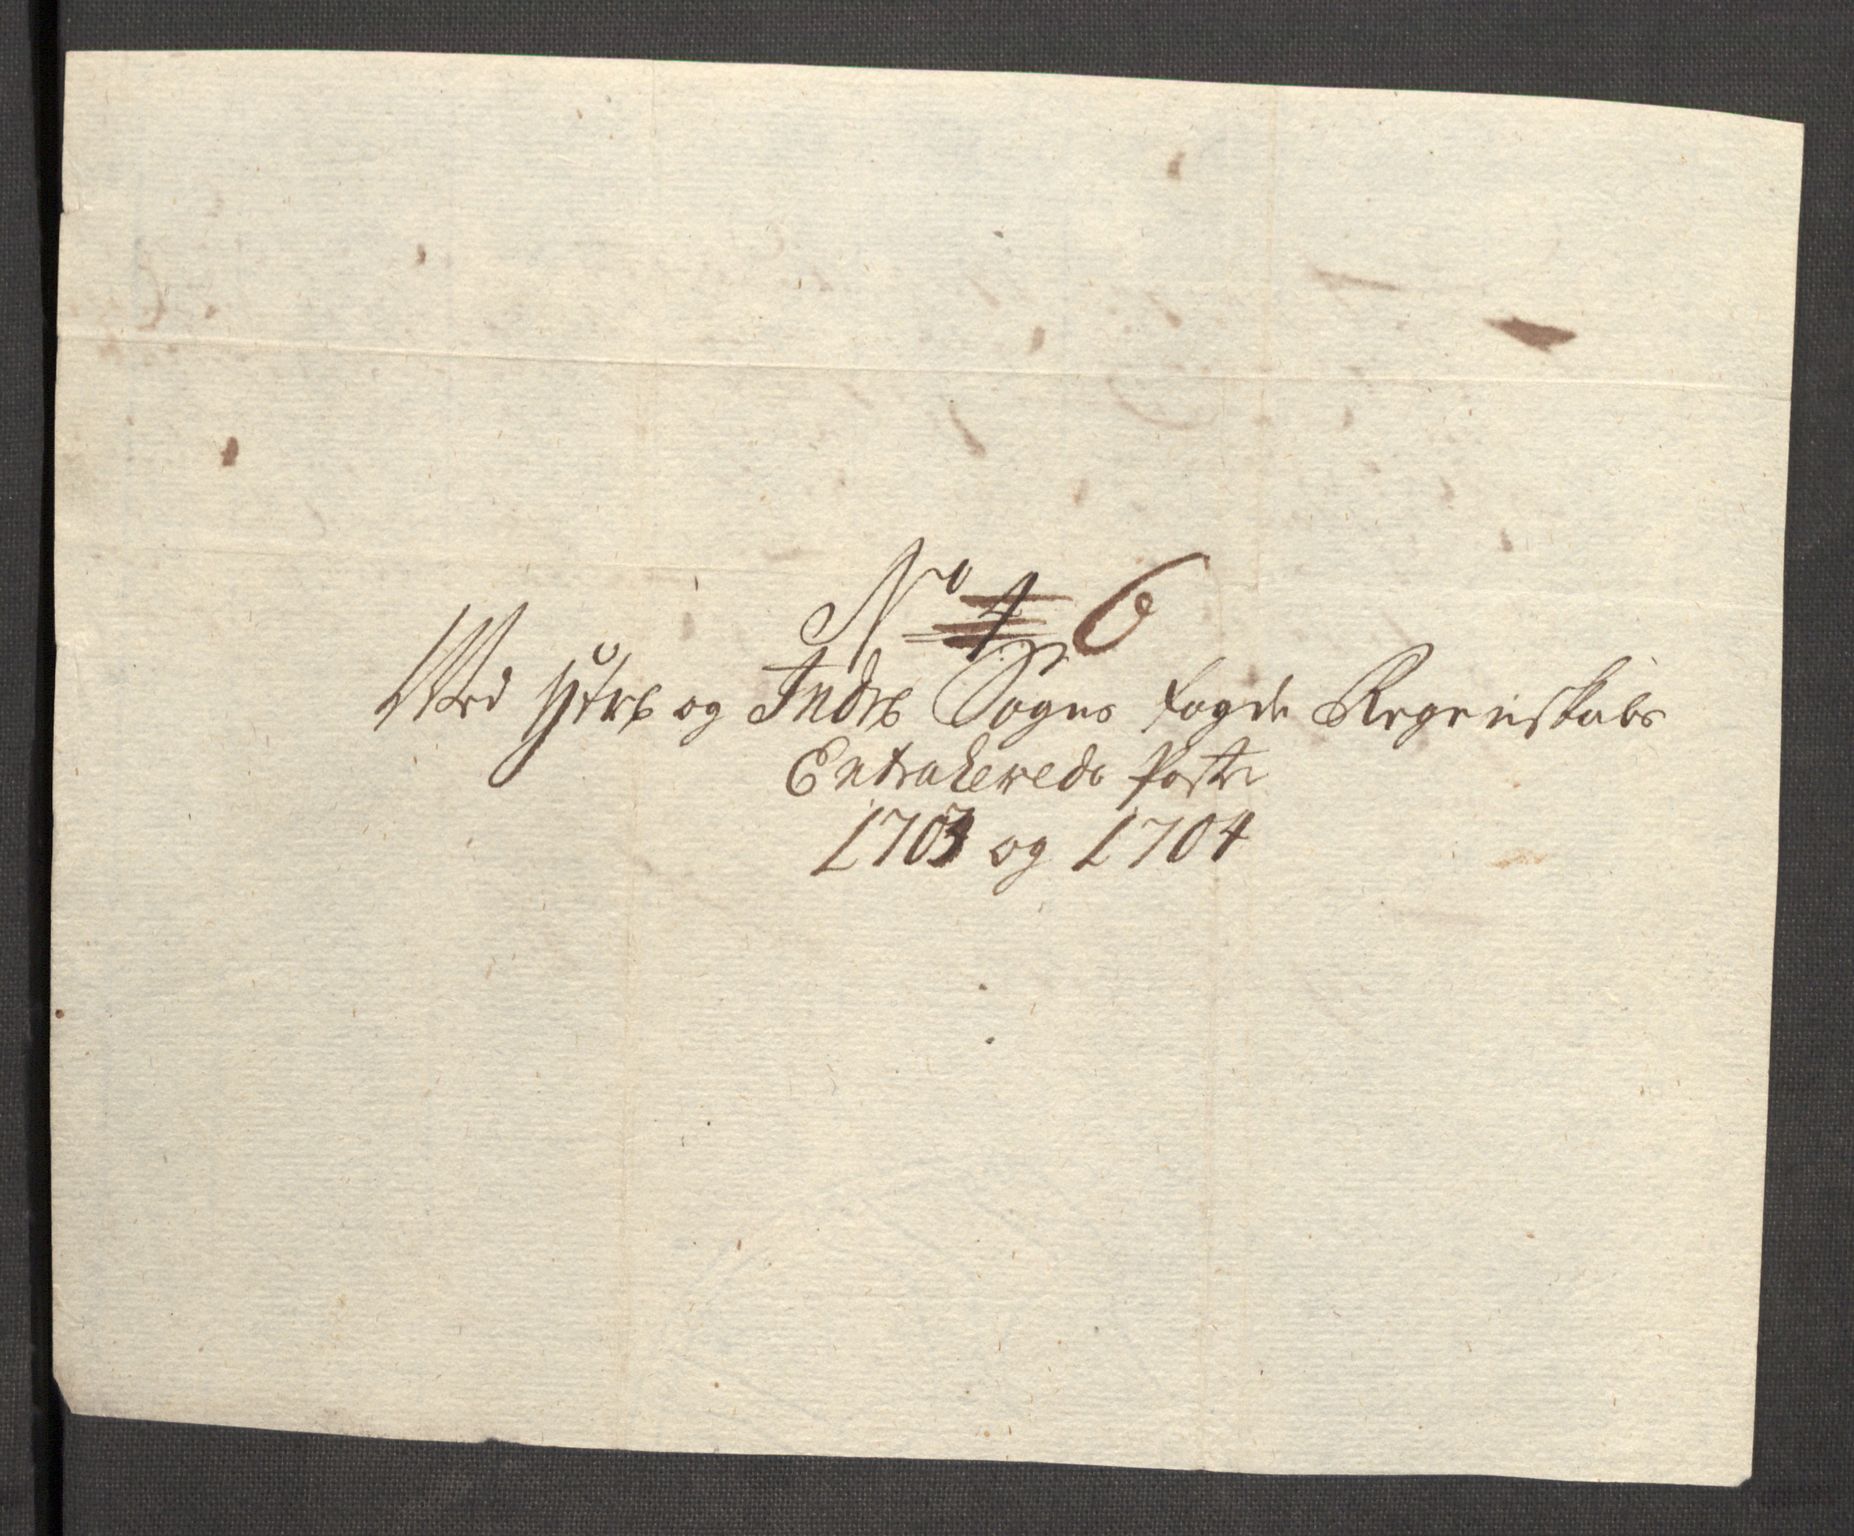 No 4 6
Ved Ytre og Indre Sogns fogde Regenskabs
Extraherede Poster
1703 og 1704